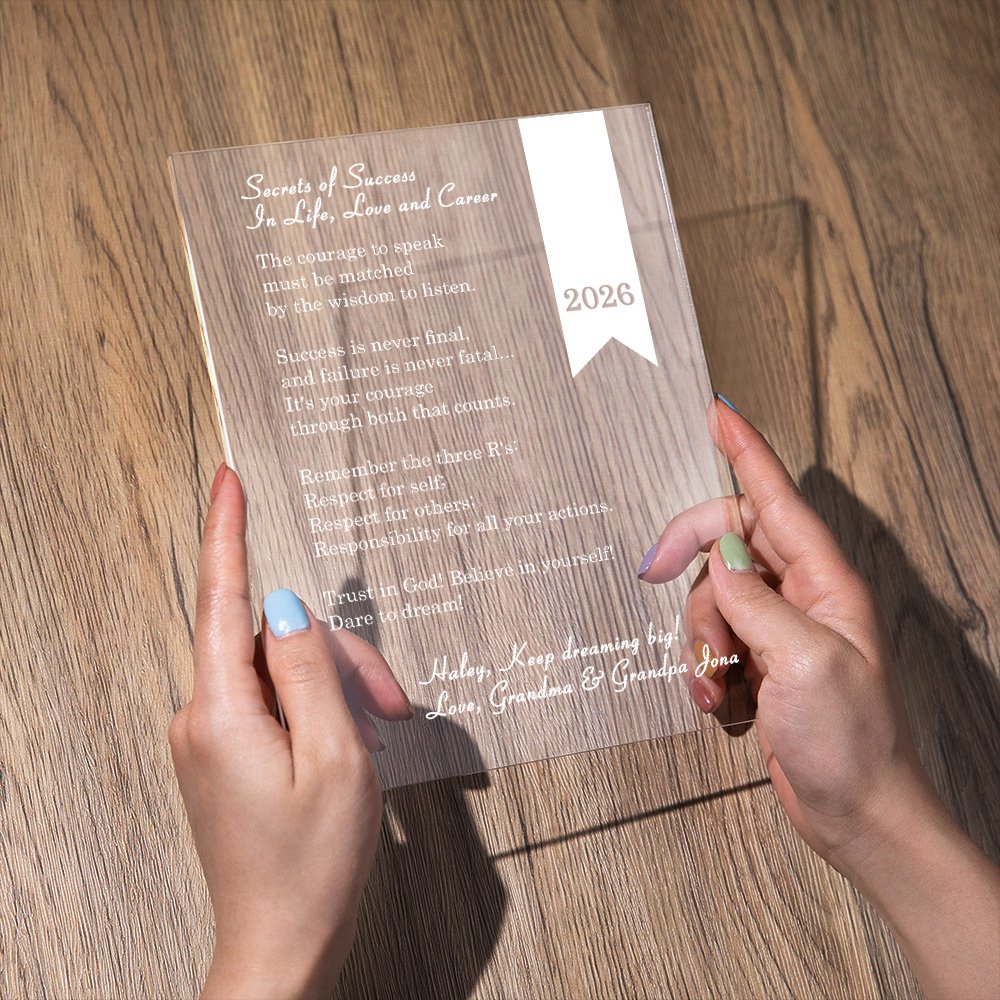 Secrets of Success
In Life, Love and Career
The courage to speak
must be matched
by the wisdom to listen.
Success is never final,
and failure is never fatal...
It's your courage
through both that counts.
Remember the three R's:
Respect for self;
Respect for others;
Responsibility for all your actions.
Trust in God! Believe in yourself!
Dare to dream!
Haley, Keep dreaming big!
Love, Grandma & Grandpa Jona
2026